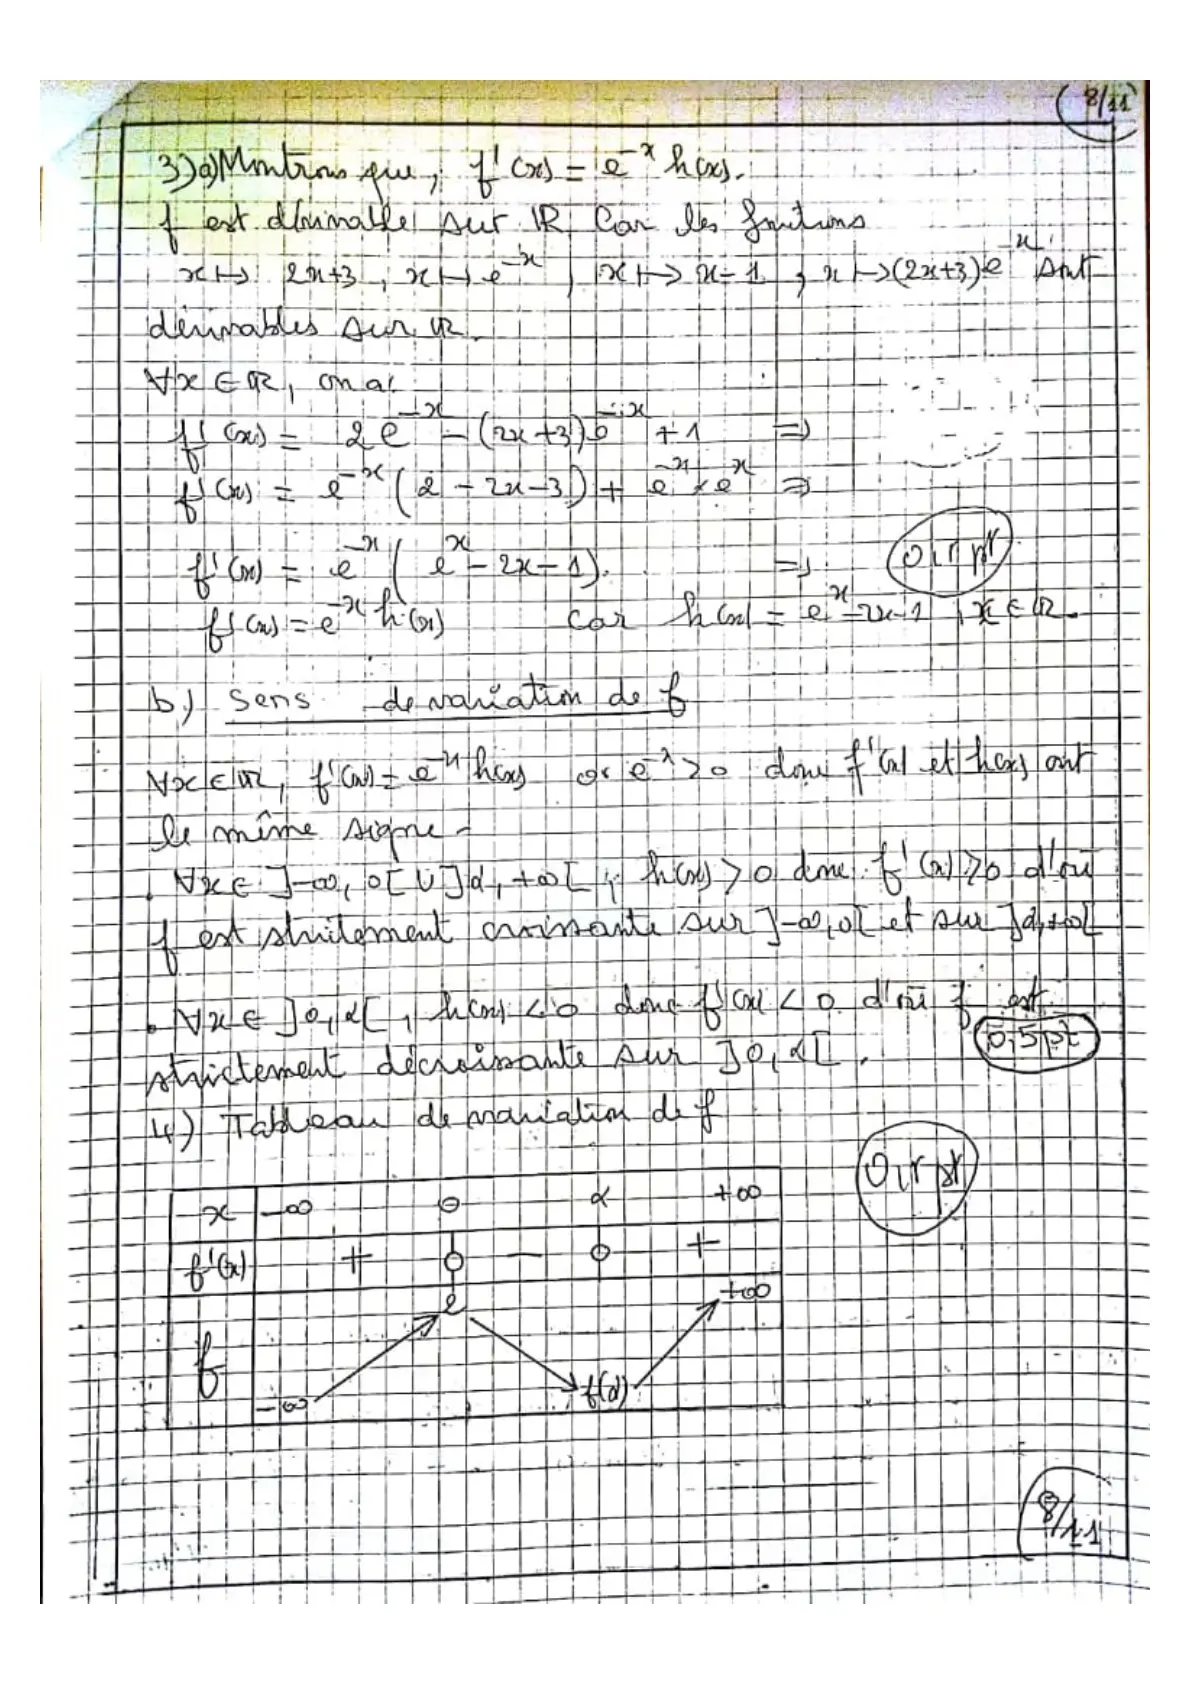 8/11
3) a) Montrons que, f'(x) = e^-x h(x).
f est dérivable sur IR car les fonctions
x ↦ 2x+3, x ↦ e^-x, x ↦ x-1, x ↦ (2x+3)e^-x sont
dérivables sur IR.
∀x ∈ IR, on a:
f'(x) = 2e^-x - (2x+3)e^-x + 1 ⇒
f'(x) = e^-x (2 - 2x - 3) + e^-x × e^x ⇒
f'(x) = e^-x (e^x - 2x - 1). ⇒
f'(x) = e^-x h(x) car h(x) = e^x - 2x - 1, x ∈ IR.
b.) Sens de variation de f
∀x ∈ IR, f'(x) = e^-x h(x) or e^-x > 0 donc f'(x) et h(x) ont
le même signe.
. ∀x ∈ ]-∞, 0[ ∪ ]α, +∞[, h(x) > 0 donc f'(x) > 0 d'où
f est strictement croissante sur ]-∞, 0[ et sur ]α, +∞[
. ∀x ∈ ]0, α[, h(x) < 0 donc f'(x) < 0 d'où f est
0,5 pt
strictement décroissante sur ]0, α[.
4.) Tableau de variation de f
x -∞ 0 α +∞
f'(x) + 0 - 0 +
+∞
2
f
-∞ f(α)
8/11